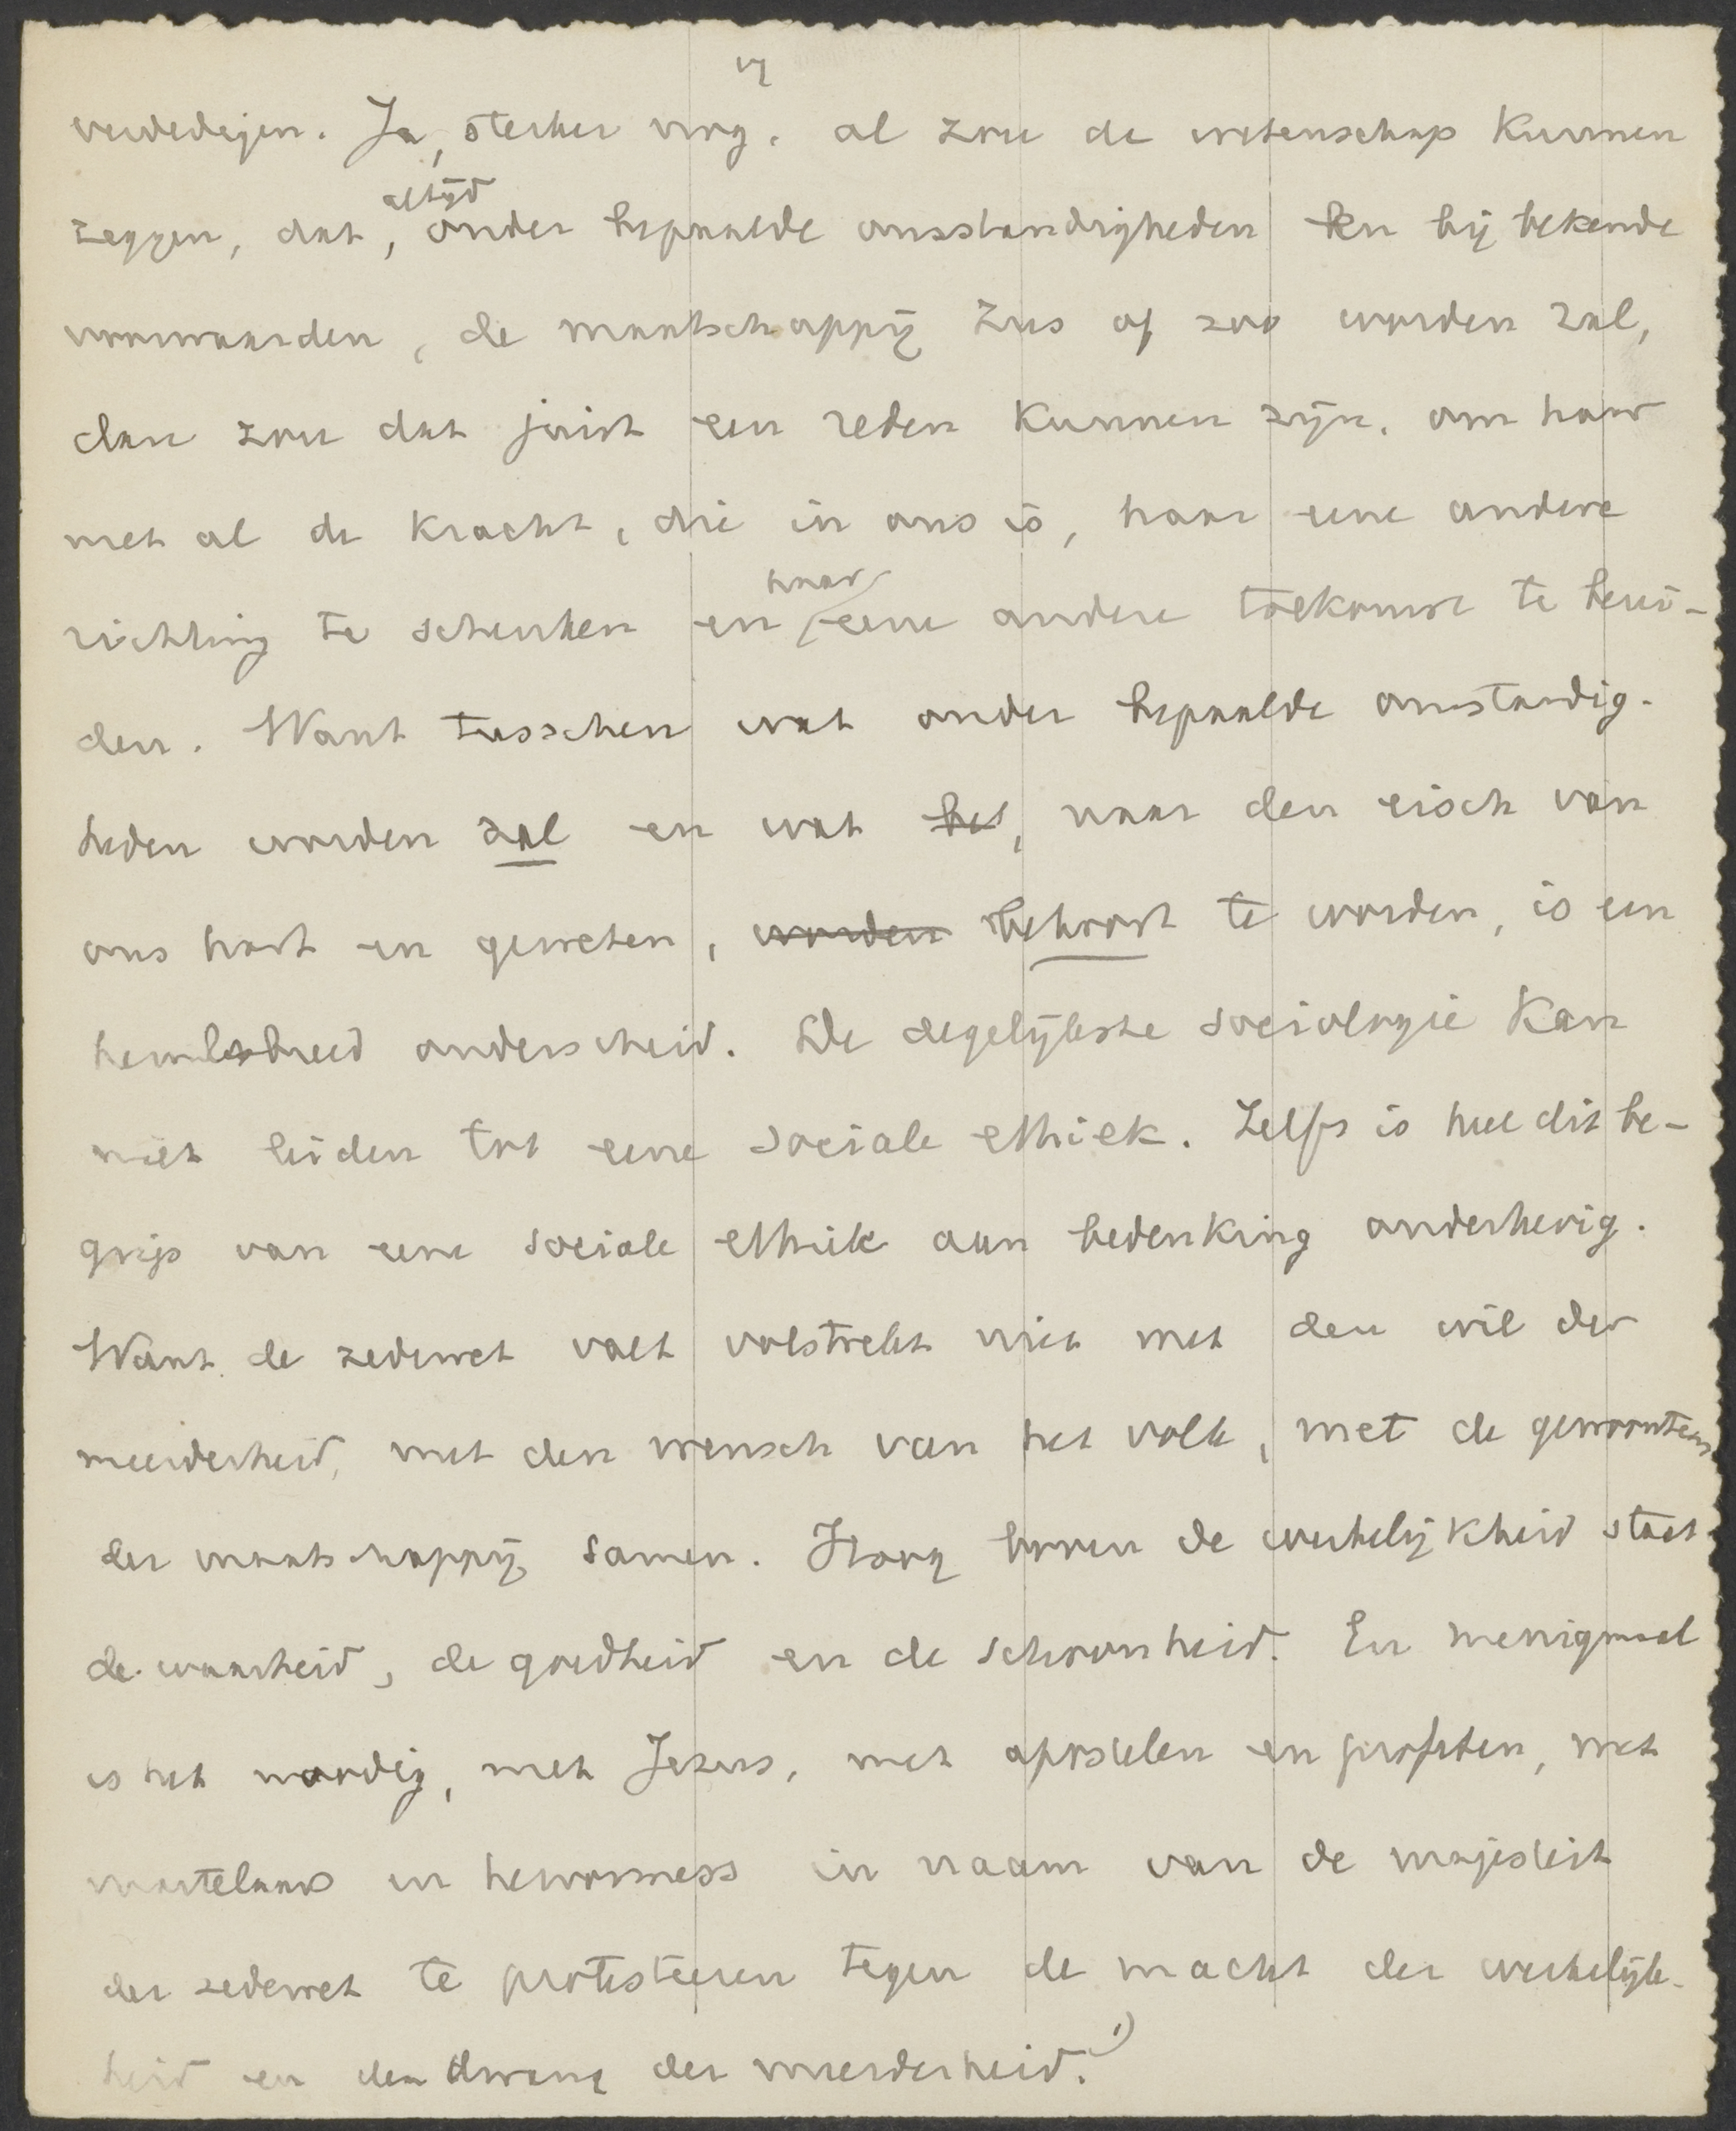 verdedigen. Ja, sterker nog, al zou de wetenschap kunnen
altijd
zeggen, dat, onder bepaalde omstandigheden en bij bekende
voorwaarden, de maatschappij zus of zoo worden zal,
dan zou dat juist een reden kunnen zijn, om haar
met al de kracht, die in ons is, haar eene andere
haar
richting te schenken en eene andere toekomst te berei-
den. Want tusschen wat onder bepaalde omstandig-
heden worden zal en wat het, naar den eisch van
ons hart en geweten, worden behoort te worden, is een
hemelsbreed onderscheid. De degelijkste sociologie kan
niet leiden tot eene sociale ethiek. Zelfs is heel dit be-
grip van eene sociale ethiek aan bedenking onderhevig.
Want de zedewet valt volstrekt niet met den wil der
meerderheid, met den wensch van het volk, met de gewoonten
der maatschappij samen. Hoog boven de werkelijkheid staat
de waarheid, de goedheid en de schoonheid. En menigmaal
is het noodig, met Jezus, met apostelen en profeten, met
martelaars en hervormers in naam van de majesteit
der zedewet te protesteeren tegen de macht der werkelijk-
heid en den dwang der meerderheid. 1)